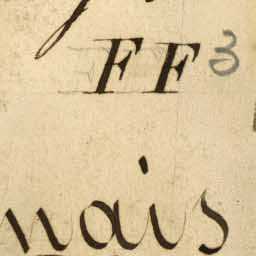 FF 3
nais